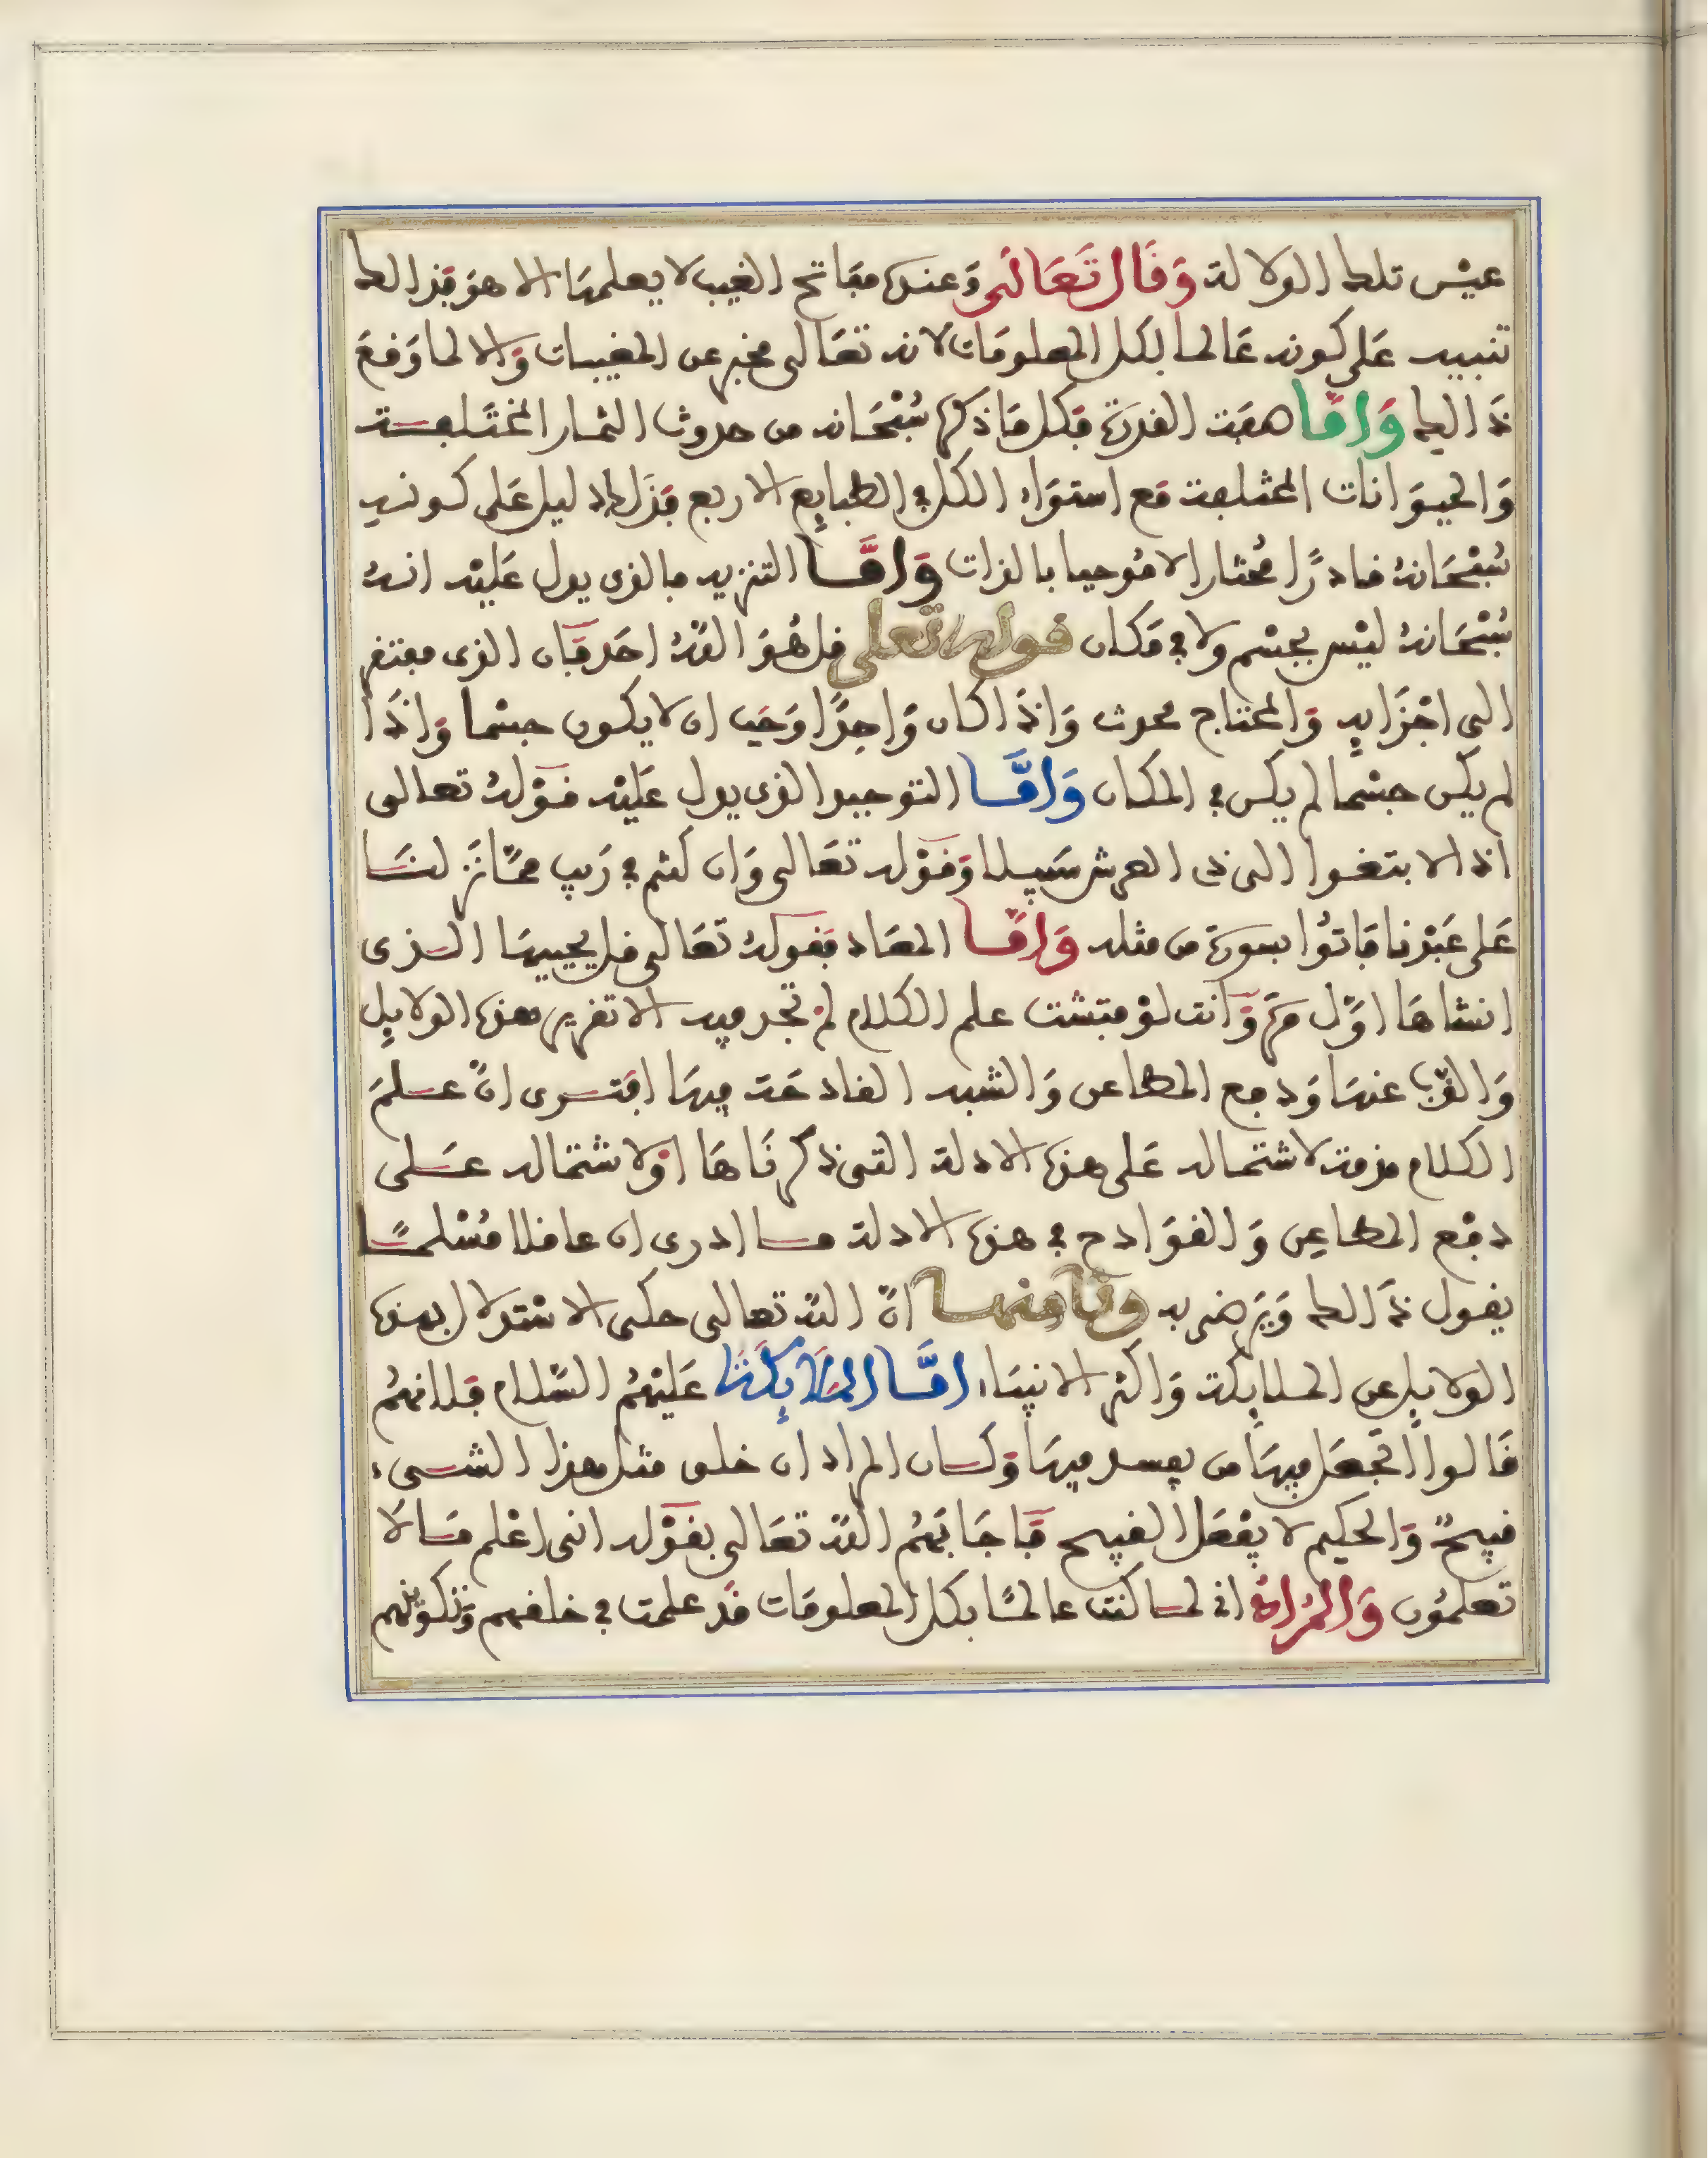 عين تلك الدلالة وَقَال تَعَالَى وَعنده مفاتح الغيب لا يعلمها الا هو فذالك
تنبيه عَلى كونه عَالما بكل المعلومَات لانه تعَالى مخبر عن المغيبات وَالا لما وَقعَ
ذَالك وَامَّا صفة القدرَة فكل مَا ذكره سُبْحَانه من حدوث الثمار المختَلفة
وَالحيوَانات المختلفة مَع استوَاء الكل في الطبايع الاربع فذَلك دليل عَلى كونه
سُبْحَانهُ قادرًا مُختارا لا مُوجبا بالذات وَامَّا التنزيه فالذى يدل عَليْه انهُ
سُبْحَانهُ ليْس بجسْم ولا في مَكان قوله تعلى قل هُوَ اللهُ احَد فَان الذى مفتقر
الى اجْزَايه وَالمحتاج محدث وَاذا كان وَاحدًا وَجَب ان لا يكون جسْما وَاذَا
لم يكن جسْما لم يكن في المكان وَامَّا التوحيد الذى يدل عَليْه قوْلهُ تعالى
اذا لا بتغوا الى ذى العرش سَبيلا وَقوْله تعَالى وَان كنتم في رَيب ممّا نزلنَا
عَلى عَبْدنا فَاتوُا بسورَة من مثله وَامَّا المعَاد فقولهُ تعَالى قل يحييهَا الذى
انشاهَا اوّل مرّة وَانت لوْ فتشت علم الكلام لمْ تجد فيه الا تقرير هذه الدلايل
وَالذبّ عنهَا وَدفع المطاعن وَالشبه القادحَة فيهَا افترى انّ علمَ
الكلام مذمة لاشتمَاله عَلى هذه الادلة التى ذكرنَاهَا اوْ لاشتمَاله عَلى
دفْع المطاعِن وَالقوَادح في هذه الادلة مَا ادرى ان عاقلا مُسْلمًا
يقول ذَالك وَيَرضى به وثامنها انّ الله تعالى حكى الاسْتدلال بهذه
الدلايل عن الملايكة وَاكثر الانبيَاء امَّا المَلَايِكَة عَليْهمُ السّلام فلانهمُ
قَالوا اتجْعَل فيهَا من يفسد فيهَا وَكَان المراد ان خلق مثل هذا الشىء
قبيحٌ وَالحكيم لا يفْعَل القبيح فَاجَابَهمُ اللهُ تعَالى بقوْله انى اعْلم مَا لَا
تعلمُون وَالمُرادُ انى لمَا كنت عالمًا بكل المعلومَات قد علمت في خلقهم وَتكوينهم